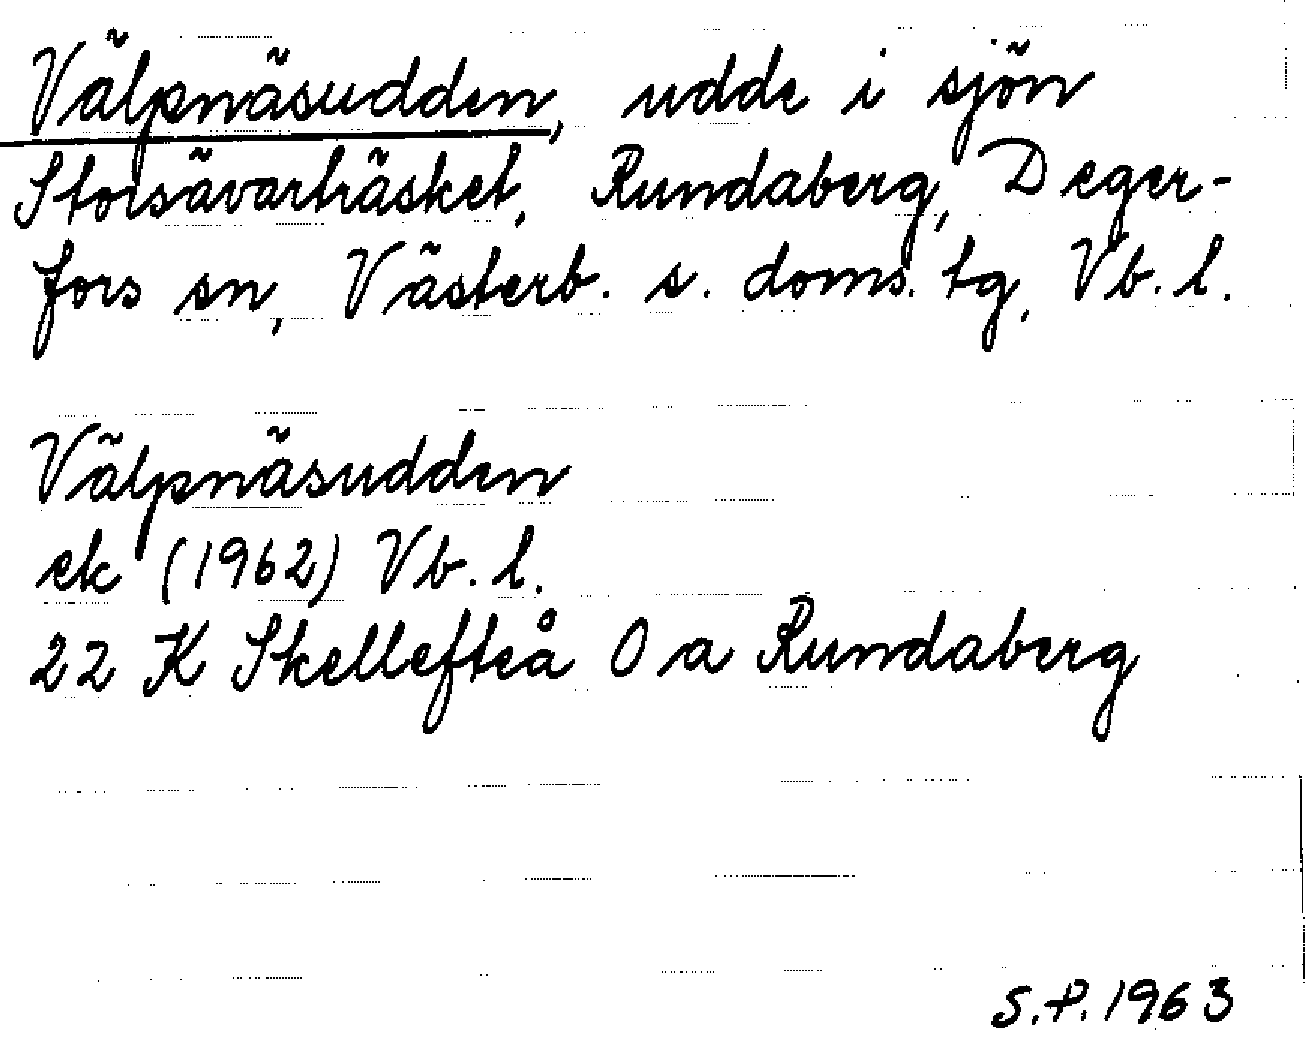 Välpnäsudden, udde i sjön
Storsävarträsket, Rundaberg, Deger-
fors sn, Västerb. s. doms. tg, Vb. l.
Välpnäsudden
ek (1962) Vb. l.
22 K Skellefteå 0 a Rundaberg
S.P. 1963